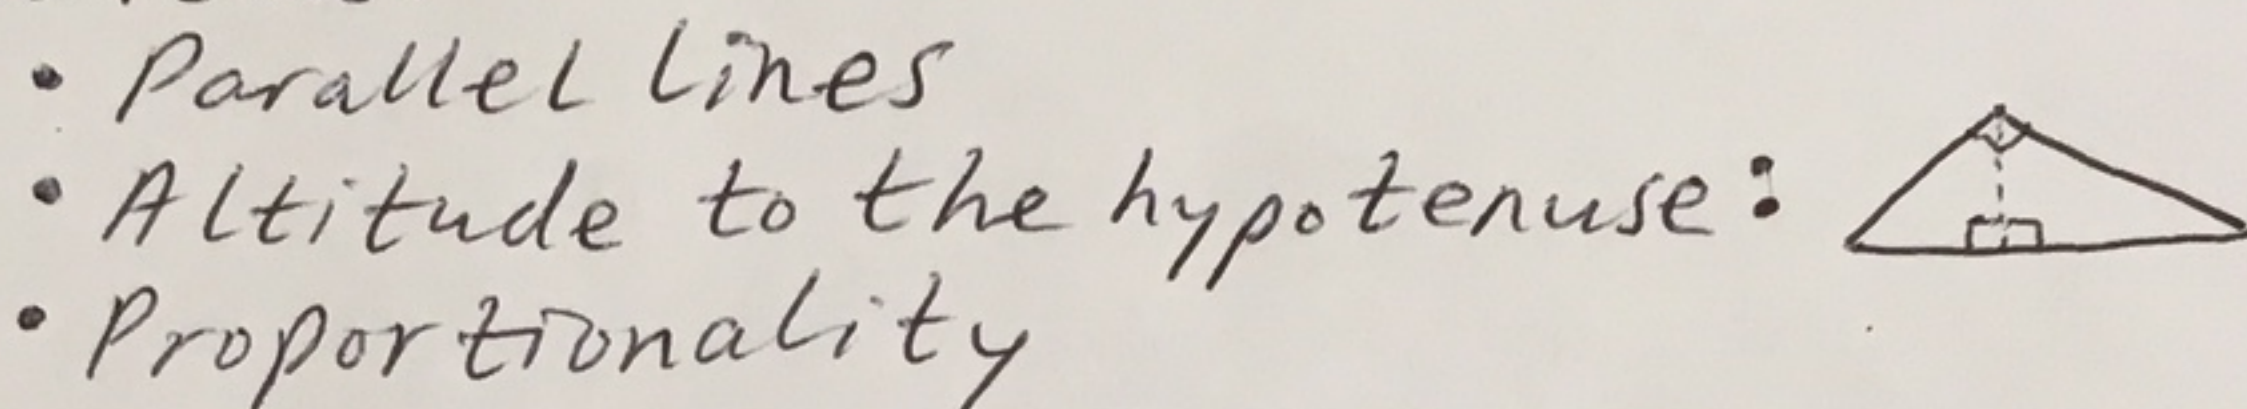 • Parallel lines
• Altitude to the hypotenuse:
• Proportionality